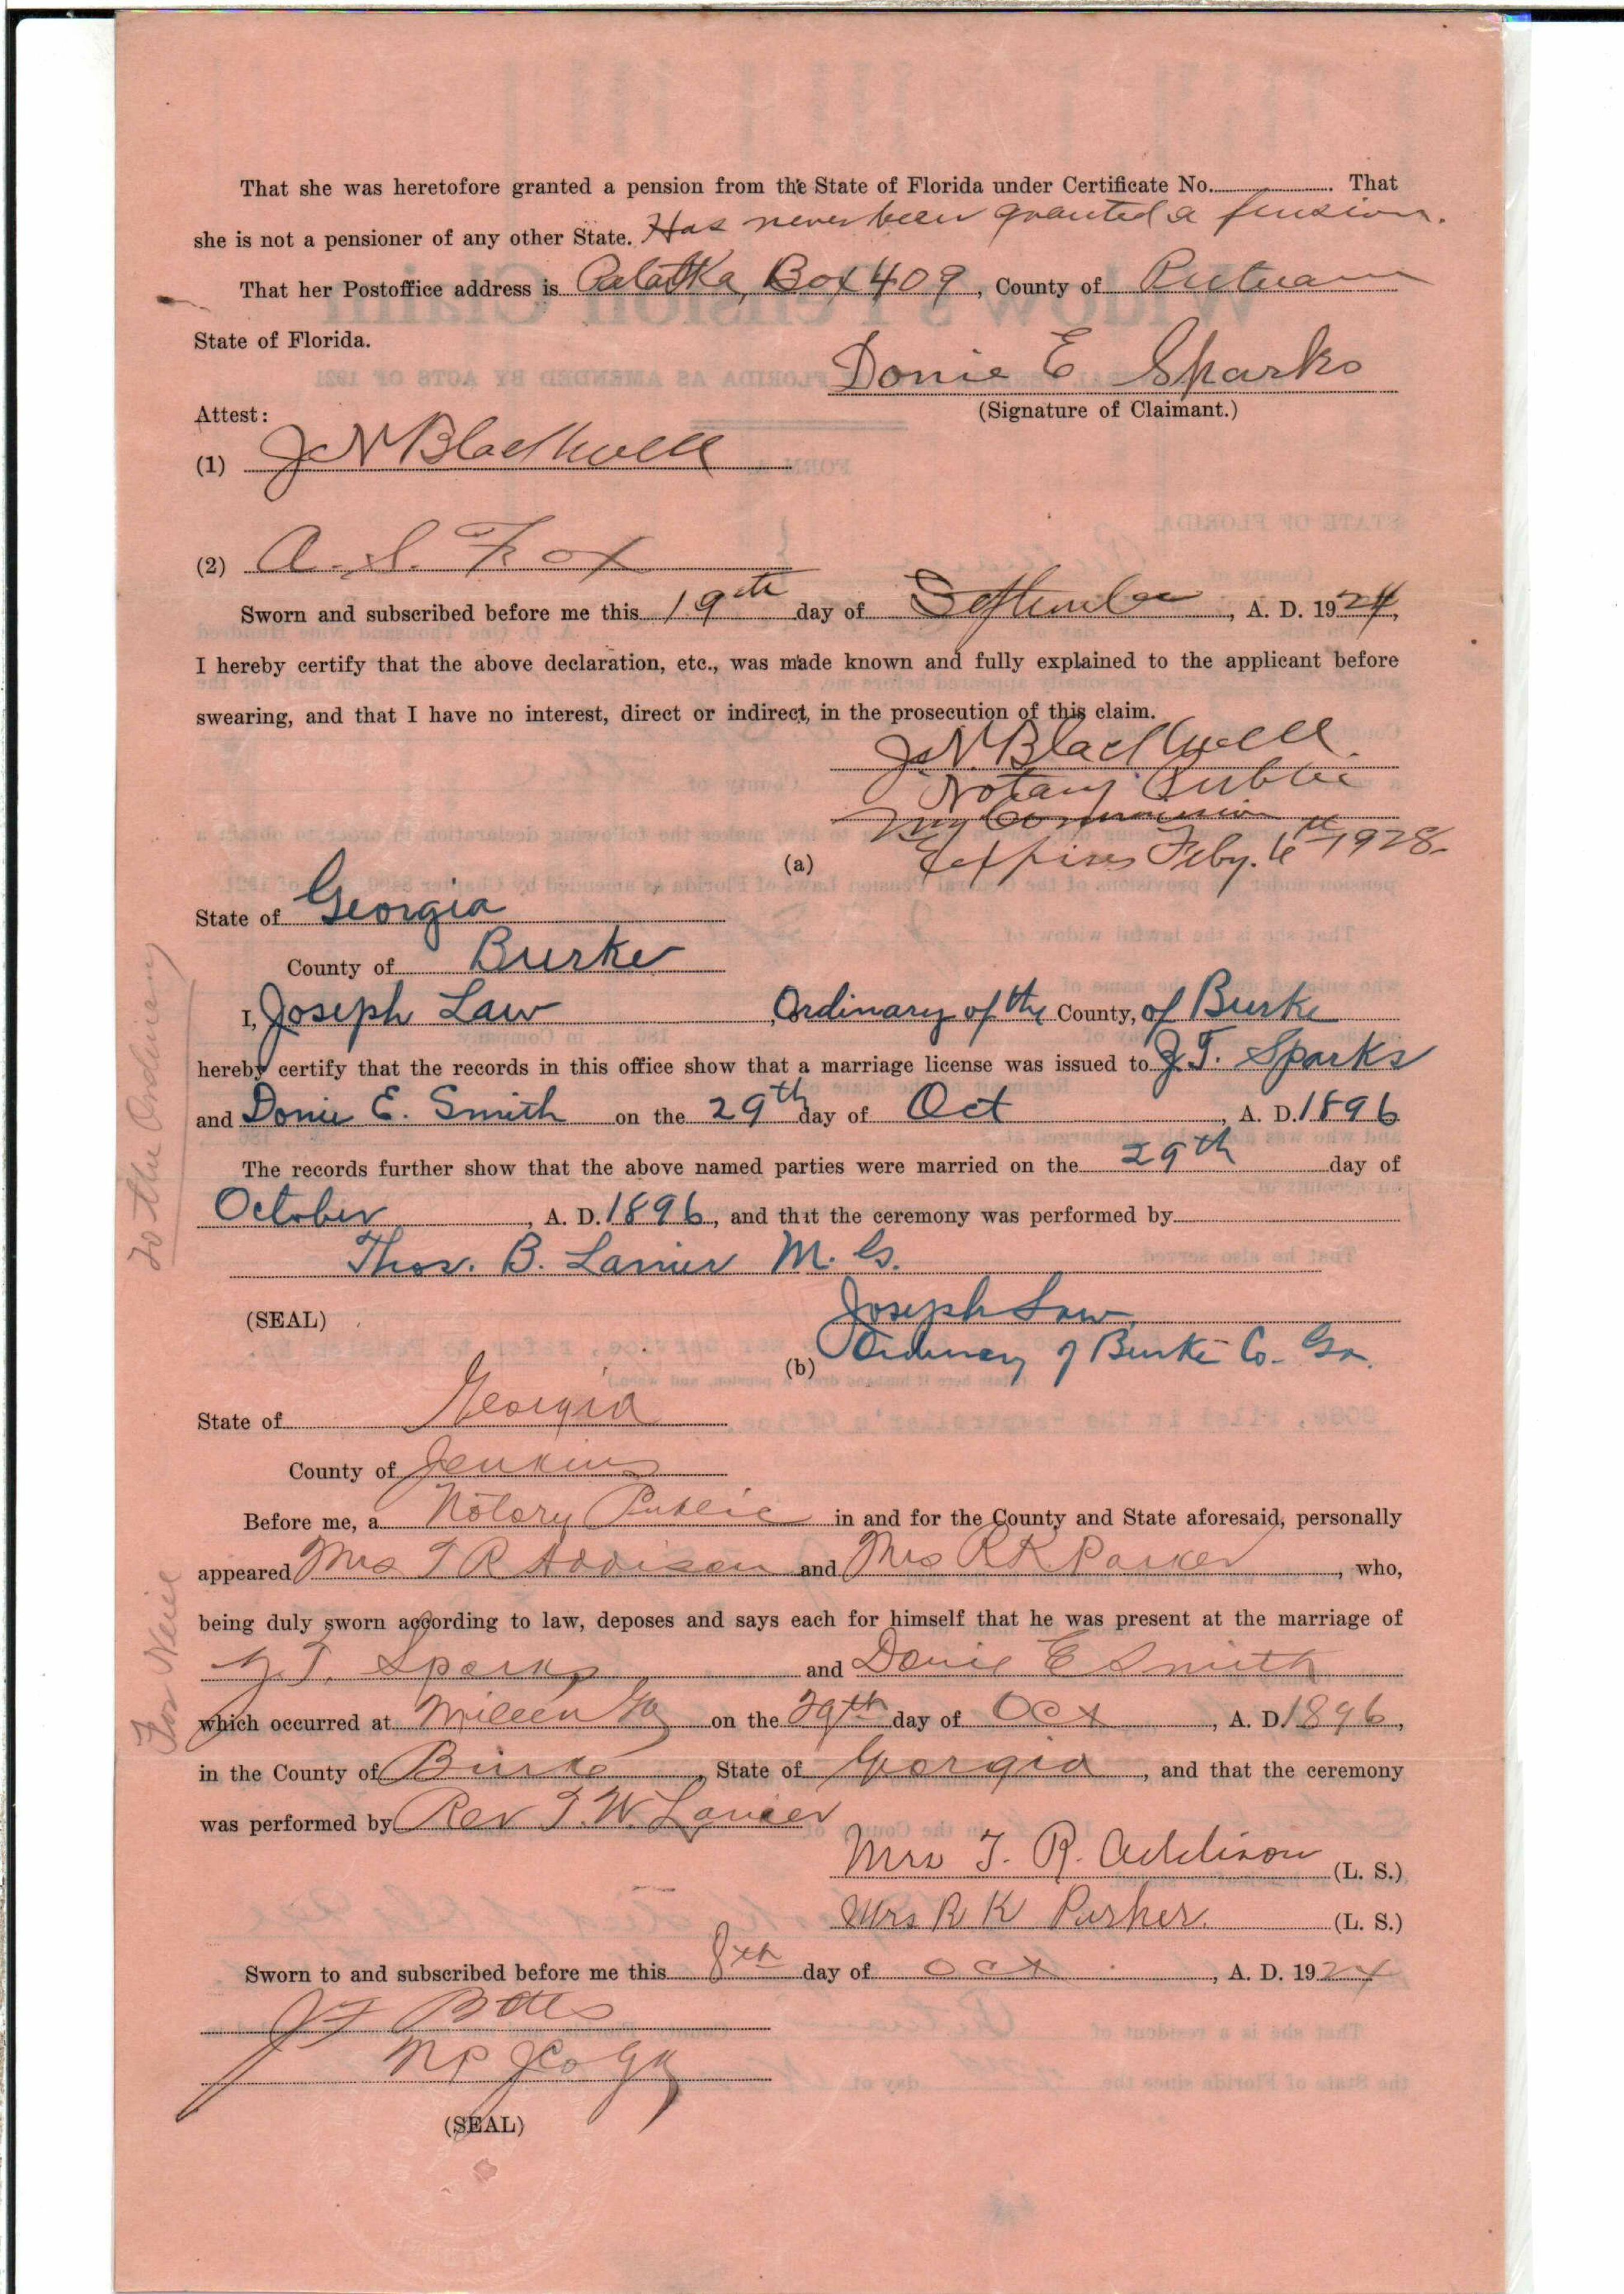 That she was heretofore granted a pension from the State of Florida under Certificate No. That
she is not a pensioner of any other State. Has never been granted a pension.
That her Postoffice address is Palatka, Box 409, County of Putnam
State of Florida.
Donie E Sparks
Attest: (Signature of Claimant.)
(1) J N Blackwell
(2) A. S. Fox
Sworn and subscribed before me this 19th day of September, A. D. 1924,
I hereby certify that the above declaration, etc., was made known and fully explained to the applicant before
swearing, and that I have no interest, direct or indirect, in the prosecution of this claim.
J. N. Blackwell
Notary Public
My Commission
(a) Expires Feby. 6th 1928-
State of Georgia
County of Burke
I, Joseph Law, Ordinary of the County, of Burke
hereby certify that the records in this office show that a marriage license was issued to J. T. Sparks
and Donie E. Smith on the 29th day of Oct, A. D. 1896
The records further show that the above named parties were married on the 29th day of
October, A. D. 1896, and that the ceremony was performed by
Thos. B. Lanier M. G.
(SEAL) Joseph Law
(b) Ordinary of Burke Co. Ga.
State of Georgia
County of Jenkins
Before me, a Notary Public in and for the County and State aforesaid, personally
appeared Mrs T R Addison and Mrs R K Parker, who,
being duly sworn according to law, deposes and says each for himself that he was present at the marriage of
J. T. Sparks and Donie E Smith
which occurred at Millen Ga on the 29th day of Oct, A. D. 1896,
in the County of Burke, State of Georgia, and that the ceremony
was performed by Rev T. W. Lanier
Mrs T. R. Addison (L. S.)
Mrs R K Parker (L. S.)
Sworn to and subscribed before me this 8th day of Oct, A. D. 1924
J F Bates
N P J Co Ga
(SEAL)
To the Ordinary